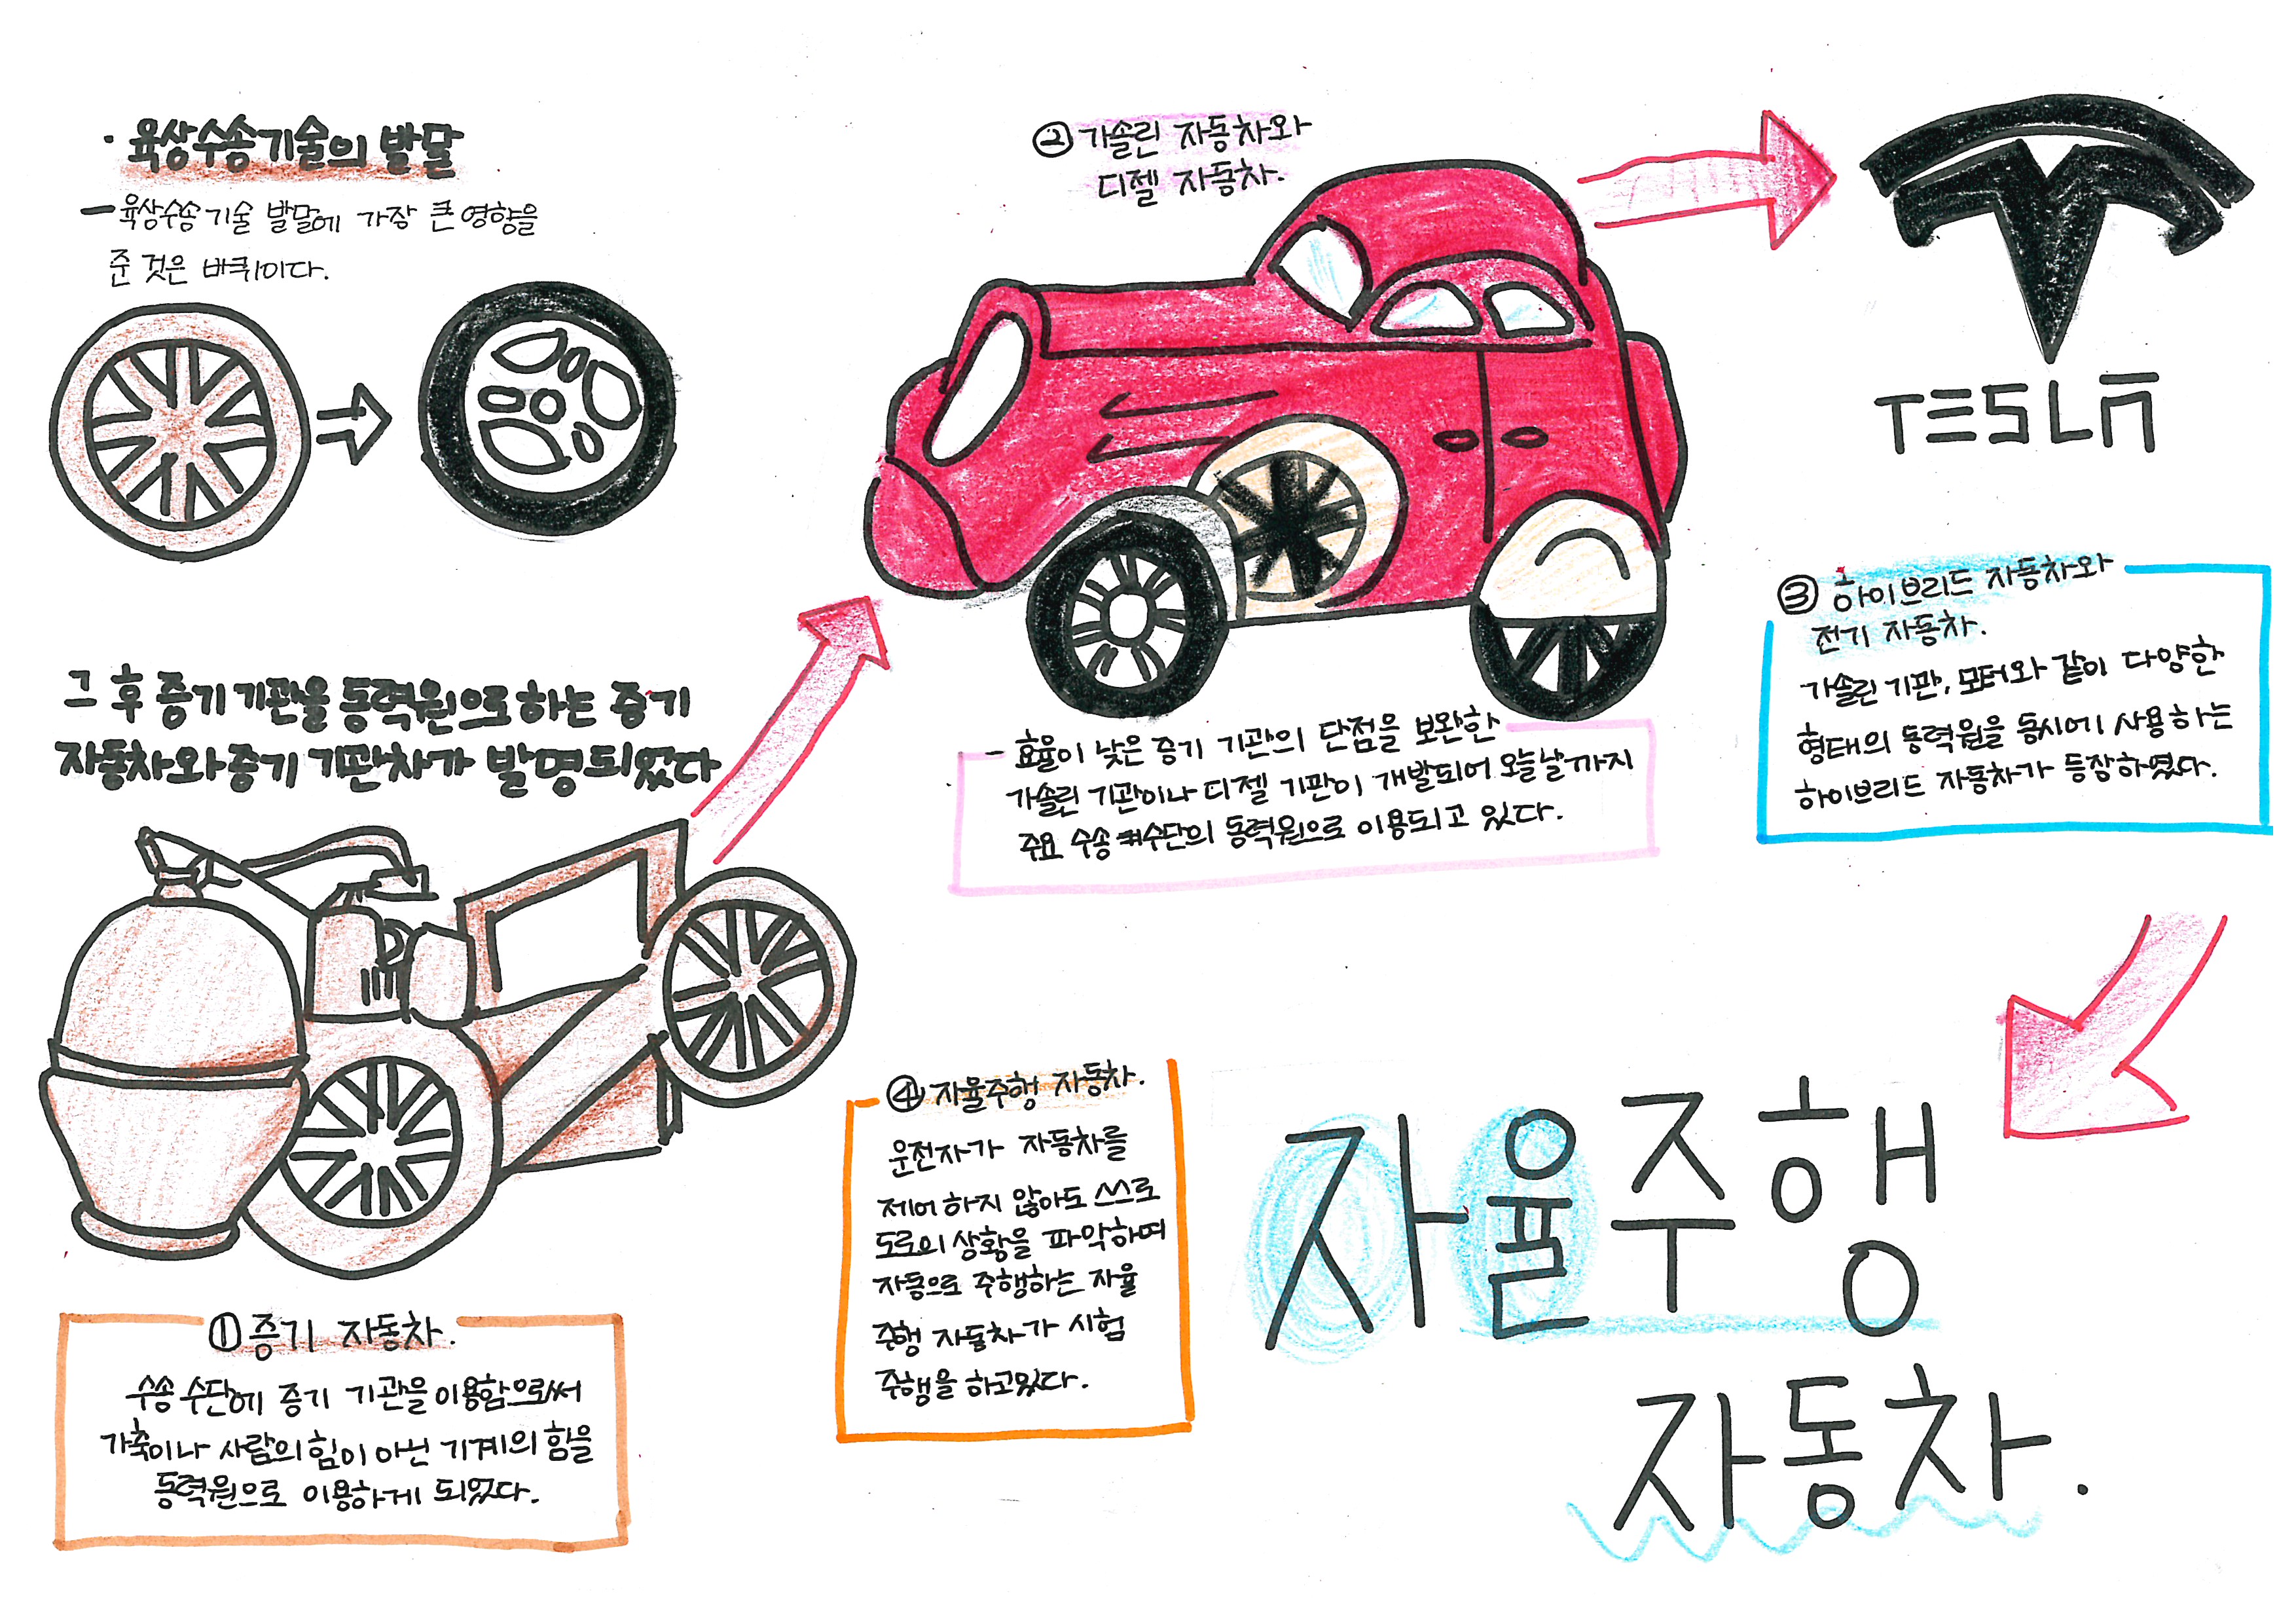 · 육상수송기술의 발달
- 육상수송 기술 발달에 가장 큰 영향을
준 것은 바퀴이다.
그 후 증기 기관을 동력원으로 하는 증기
자동차와 증기 기관차가 발명되었다
① 증기 자동차.
수송 수단에 증기 기관을 이용함으로써
가축이나 사람의 힘이 아닌 기계의 힘을
동력원으로 이용하게 되었다.
② 가솔린 자동차와
디젤 자동차.
- 효율이 낮은 증기 기관의 단점을 보완한
가솔린 기관이나 디젤 기관이 개발되어 오늘날까지
주요 수송 수단의 동력원으로 이용되고 있다.
TESLA
③ 하이브리드 자동차와
전기 자동차.
가솔린 기관, 모터와 같이 다양한
형태의 동력원을 동시에 사용하는
하이브리드 자동차가 등장하였다.
④ 자율주행 자동차.
운전자가 자동차를
제어 하지 않아도 스스로
도로의 상황을 파악하여
자동으로 주행하는 자율
주행 자동차가 시험
주행을 하고있다.
자율주행
자동차.